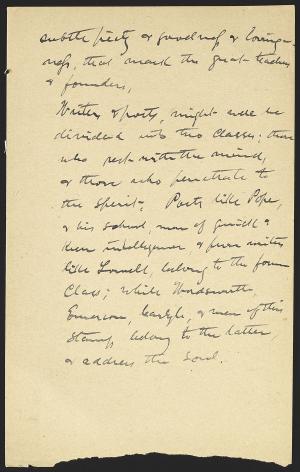 subtle piety & goodness & loving-
ness, that mark the great teachers
& founders.
Writers & poets, might well be
divided into two classes; those
who rest with the mind,
& those who penetrate to
the spirit. Poets like Pope,
& his school, men of quick &
keen intelligence, & pure writers
like Lowell, belong to the former
Class; while Wordsworth,
Emerson, Carlyle, & men of this
stamp, belong to the latter,
& address the soul.